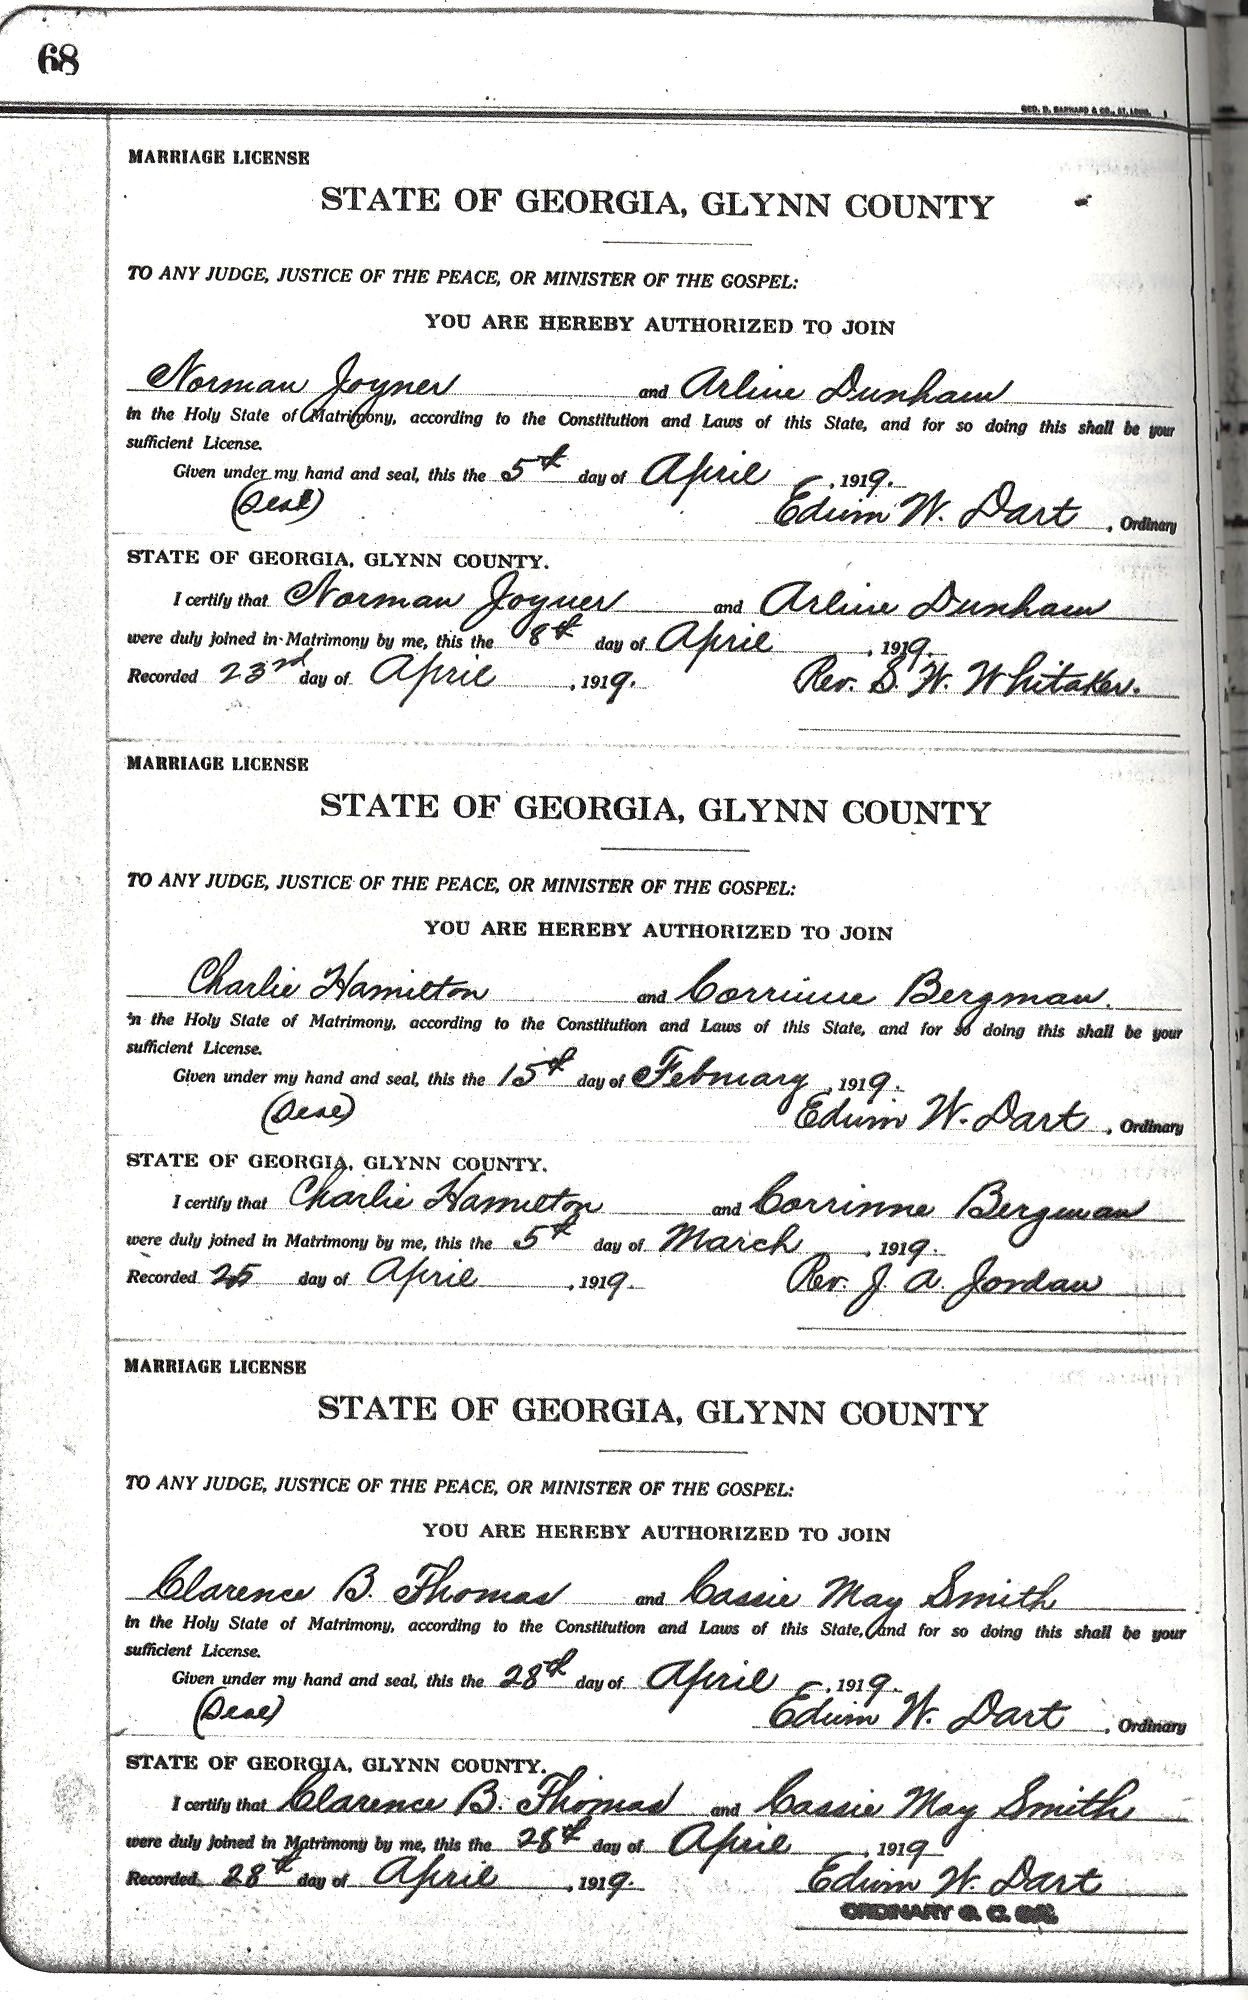 68
GEO. D. BARNARD & CO., ST. LOUIS.
MARRIAGE LICENSE
STATE OF GEORGIA, GLYNN COUNTY
TO ANY JUDGE, JUSTICE OF THE PEACE, OR MINISTER OF THE GOSPEL:
YOU ARE HEREBY AUTHORIZED TO JOIN
Norman Joyner and Arline Dunham
in the Holy State of Matrimony, according to the Constitution and Laws of this State, and for so doing this shall be your
sufficient License.
Given under my hand and seal, this the 5th day of April, 1919.
(Seal) Edwin W. Dart, Ordinary
STATE OF GEORGIA, GLYNN COUNTY.
I certify that Norman Joyner and Arline Dunham
were duly joined in Matrimony by me, this the 8th day of April, 1919.
Recorded 23rd day of April, 1919. Rev. S. W. Whitaker.
MARRIAGE LICENSE
STATE OF GEORGIA, GLYNN COUNTY
TO ANY JUDGE, JUSTICE OF THE PEACE, OR MINISTER OF THE GOSPEL:
YOU ARE HEREBY AUTHORIZED TO JOIN
Charlie Hamilton and Corrinne Bergman.
in the Holy State of Matrimony, according to the Constitution and Laws of this State, and for so doing this shall be your
sufficient License.
Given under my hand and seal, this the 15th day of February, 1919.
(Seal) Edwin W. Dart, Ordinary
STATE OF GEORGIA, GLYNN COUNTY.
I certify that Charlie Hamilton and Corrinne Bergman
were duly joined in Matrimony by me, this the 5th day of March, 1919.
Recorded 25 day of April, 1919. Rev. J. A. Jordan
MARRIAGE LICENSE
STATE OF GEORGIA, GLYNN COUNTY
TO ANY JUDGE, JUSTICE OF THE PEACE, OR MINISTER OF THE GOSPEL:
YOU ARE HEREBY AUTHORIZED TO JOIN
Clarence B. Thomas and Cassie May Smith
in the Holy State of Matrimony, according to the Constitution and Laws of this State, and for so doing this shall be your
sufficient License.
Given under my hand and seal, this the 28th day of April, 1919.
(Seal) Edwin W. Dart, Ordinary
STATE OF GEORGIA, GLYNN COUNTY.
I certify that Clarence B. Thomas and Cassie May Smith
were duly joined in Matrimony by me, this the 28th day of April, 1919
Recorded 28th day of April, 1919. Edwin W. Dart
ORDINARY G. C. GA.